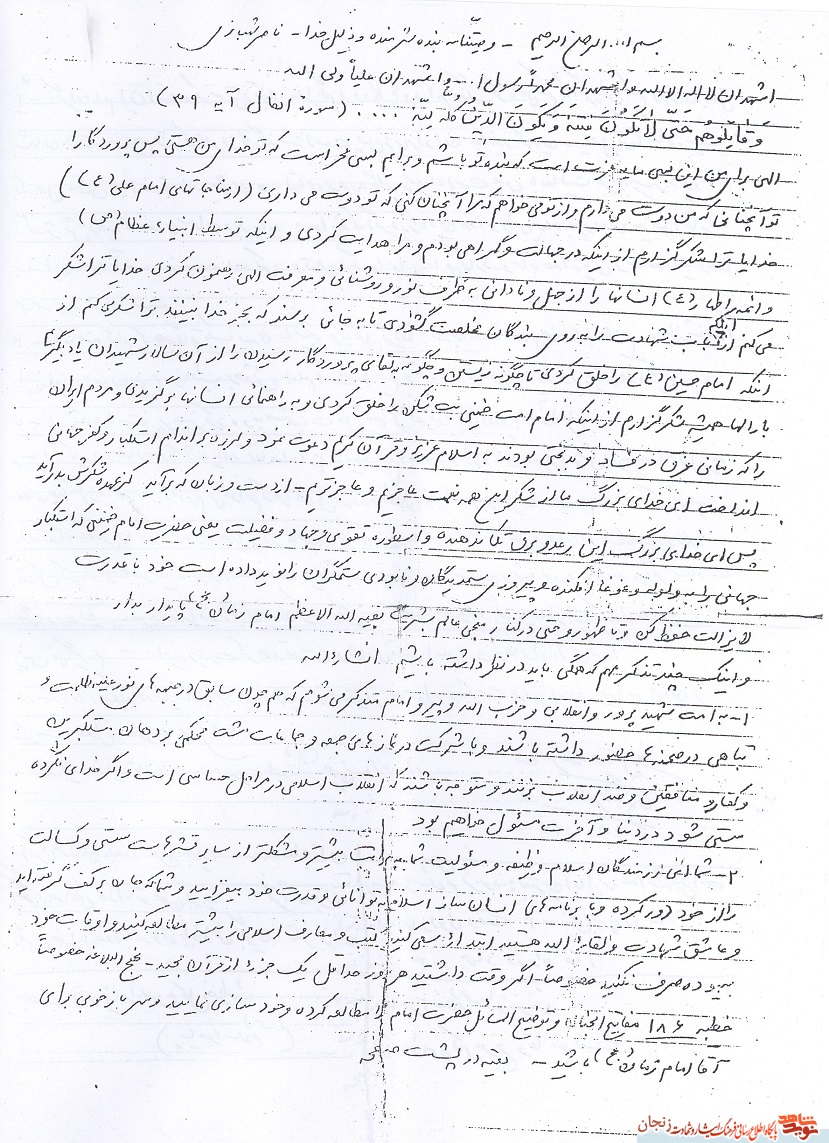 بسم ا... الرحمن الرحیم - وصیتنامه بنده شرمنده و ذلیل خدا - ناصر شهبازی
اشهد ان لا اله الا الله و اشهد ان محمد رسول ا... و اشهد ان علیاً ولی الله
وَ قاتِلوهُم حَتّی لا تَکونَ فِتنَة وَ یَکونَ الدّینُ کُلّه لِلّه .... (سورهٔ انفال آیه ۳۹)
الهی برای من این بس مایه عزت است که بنده تو باشم و برایم بسی فخر است که تو خدای من هستی پس پروردگارا
تو آنچنانی که من دوست می دارم و از تو می خواهم که مرا آنچنان کنی که تو دوست می داری (از مناجاتهای امام علی (ع))
خدایا ترا شکر گزارم از اینکه در جهالت و گمراهی بودم و مرا هدایت کردی و اینکه توسط انبیاء عظام (ص)
و ائمه اطهار (ع) انسانها را از جهل و نادانی به طرف نور و روشنائی و معرفت الهی رهنمون کردی خدایا ترا شکر
می کنم از اینکه باب شهادت را به روی بندگان مخلصت گشودی تا به جائی برسند که بجز خدا نبینند ترا شکر می کنم از
اینکه امام حسین (ع) را خلق کردی تا چگونه زیستن و چگونه به لقای پروردگار رسیدن را از آن سالار شهیدان یاد بگیریم
بارالها همیشه شکر گزارم از اینکه امام امت خمینی بت شکن را خلق کردی و به راهنمائی انسانها برگزیدی و مردم ایران
را که زمانی غرق در فساد و بدبختی بودند به اسلام عزیز و قرآن کریم دعوت نمود و لرزه بر اندام استکبار و کفر جهانی
انداخت ای خدای بزرگ ما از شکر این همه نعمت عاجزیم و عاجزتریم - از دست و زبان که برآید کز عهده شکرش بدر آید
پس ای خدای بزرگ این رعد و برق تکان دهنده و اسطوره تقوی و جهاد و فضیلت یعنی حضرت امام خمینی که استکبار
جهانی را به ولوله و غوغا افکنده و پیروزی ستمدیدگان و نابودی ستمگران را نوید داده است خود با قدرت
لایزالت حفظ کن و تا ظهور و حتی در کنار منجی عالم بشریت بقیه الله الاعظم امام زمان (عج) پایدار بدار
و اینک چند تذکر مهم که همگی باید در نظر داشته باشیم انشاءالله
۱- به امت شهید پرور و انقلابی و حزب الله و پیرو امام متذکر می شوم که همچون سابق در جبهه های نور علیه ظلمت و
تباهی در صحنه ها حضور داشته باشند و با شرکت در نماز های جمعه و جماعات مشت محکمی بر دهان مستکبرین
و کفار و منافقین و ضد انقلاب بزنند و متوجه باشند که انقلاب اسلامی در مراحل حساسی است و اگر خدای نکرده
سستی شود در دنیا و آخرت مسئول خواهیم بود
۲- شما ای رزمندگان اسلام وظیفه و مسئولیت شما به مراتب بیشتر و مشکلتر از سایر قشرهاست سستی و کسالت
را از خود دور کرده و با برنامه های انسان ساز اسلام به توانائی و قدرت خود بیفزایید و شما که جان بر کف گرفته اید
و عاشق شهادت و لقاء الله هستید ابتدا سعی کنید کتب و معارف اسلامی را بیشتر مطالعه کنید و اوقات خود
بیهوده صرف نکنید خصوصاً اگر وقت داشتید هر روز حداقل یک جزء از قرآن مجید - نهج البلاغه خصوصاً
خطبه ۱۸۶ مفاتیح الجنان و توضیح المسائل حضرت امام را مطالعه کرده و خود سازی نمایید و سرباز خوبی برای
آقا امام زمان (عج) باشید - بقیه در پشت صفحه
نوید شاهد پایگاه اطلاع رسانی فرهنگ ایثار و شهادت زنجان